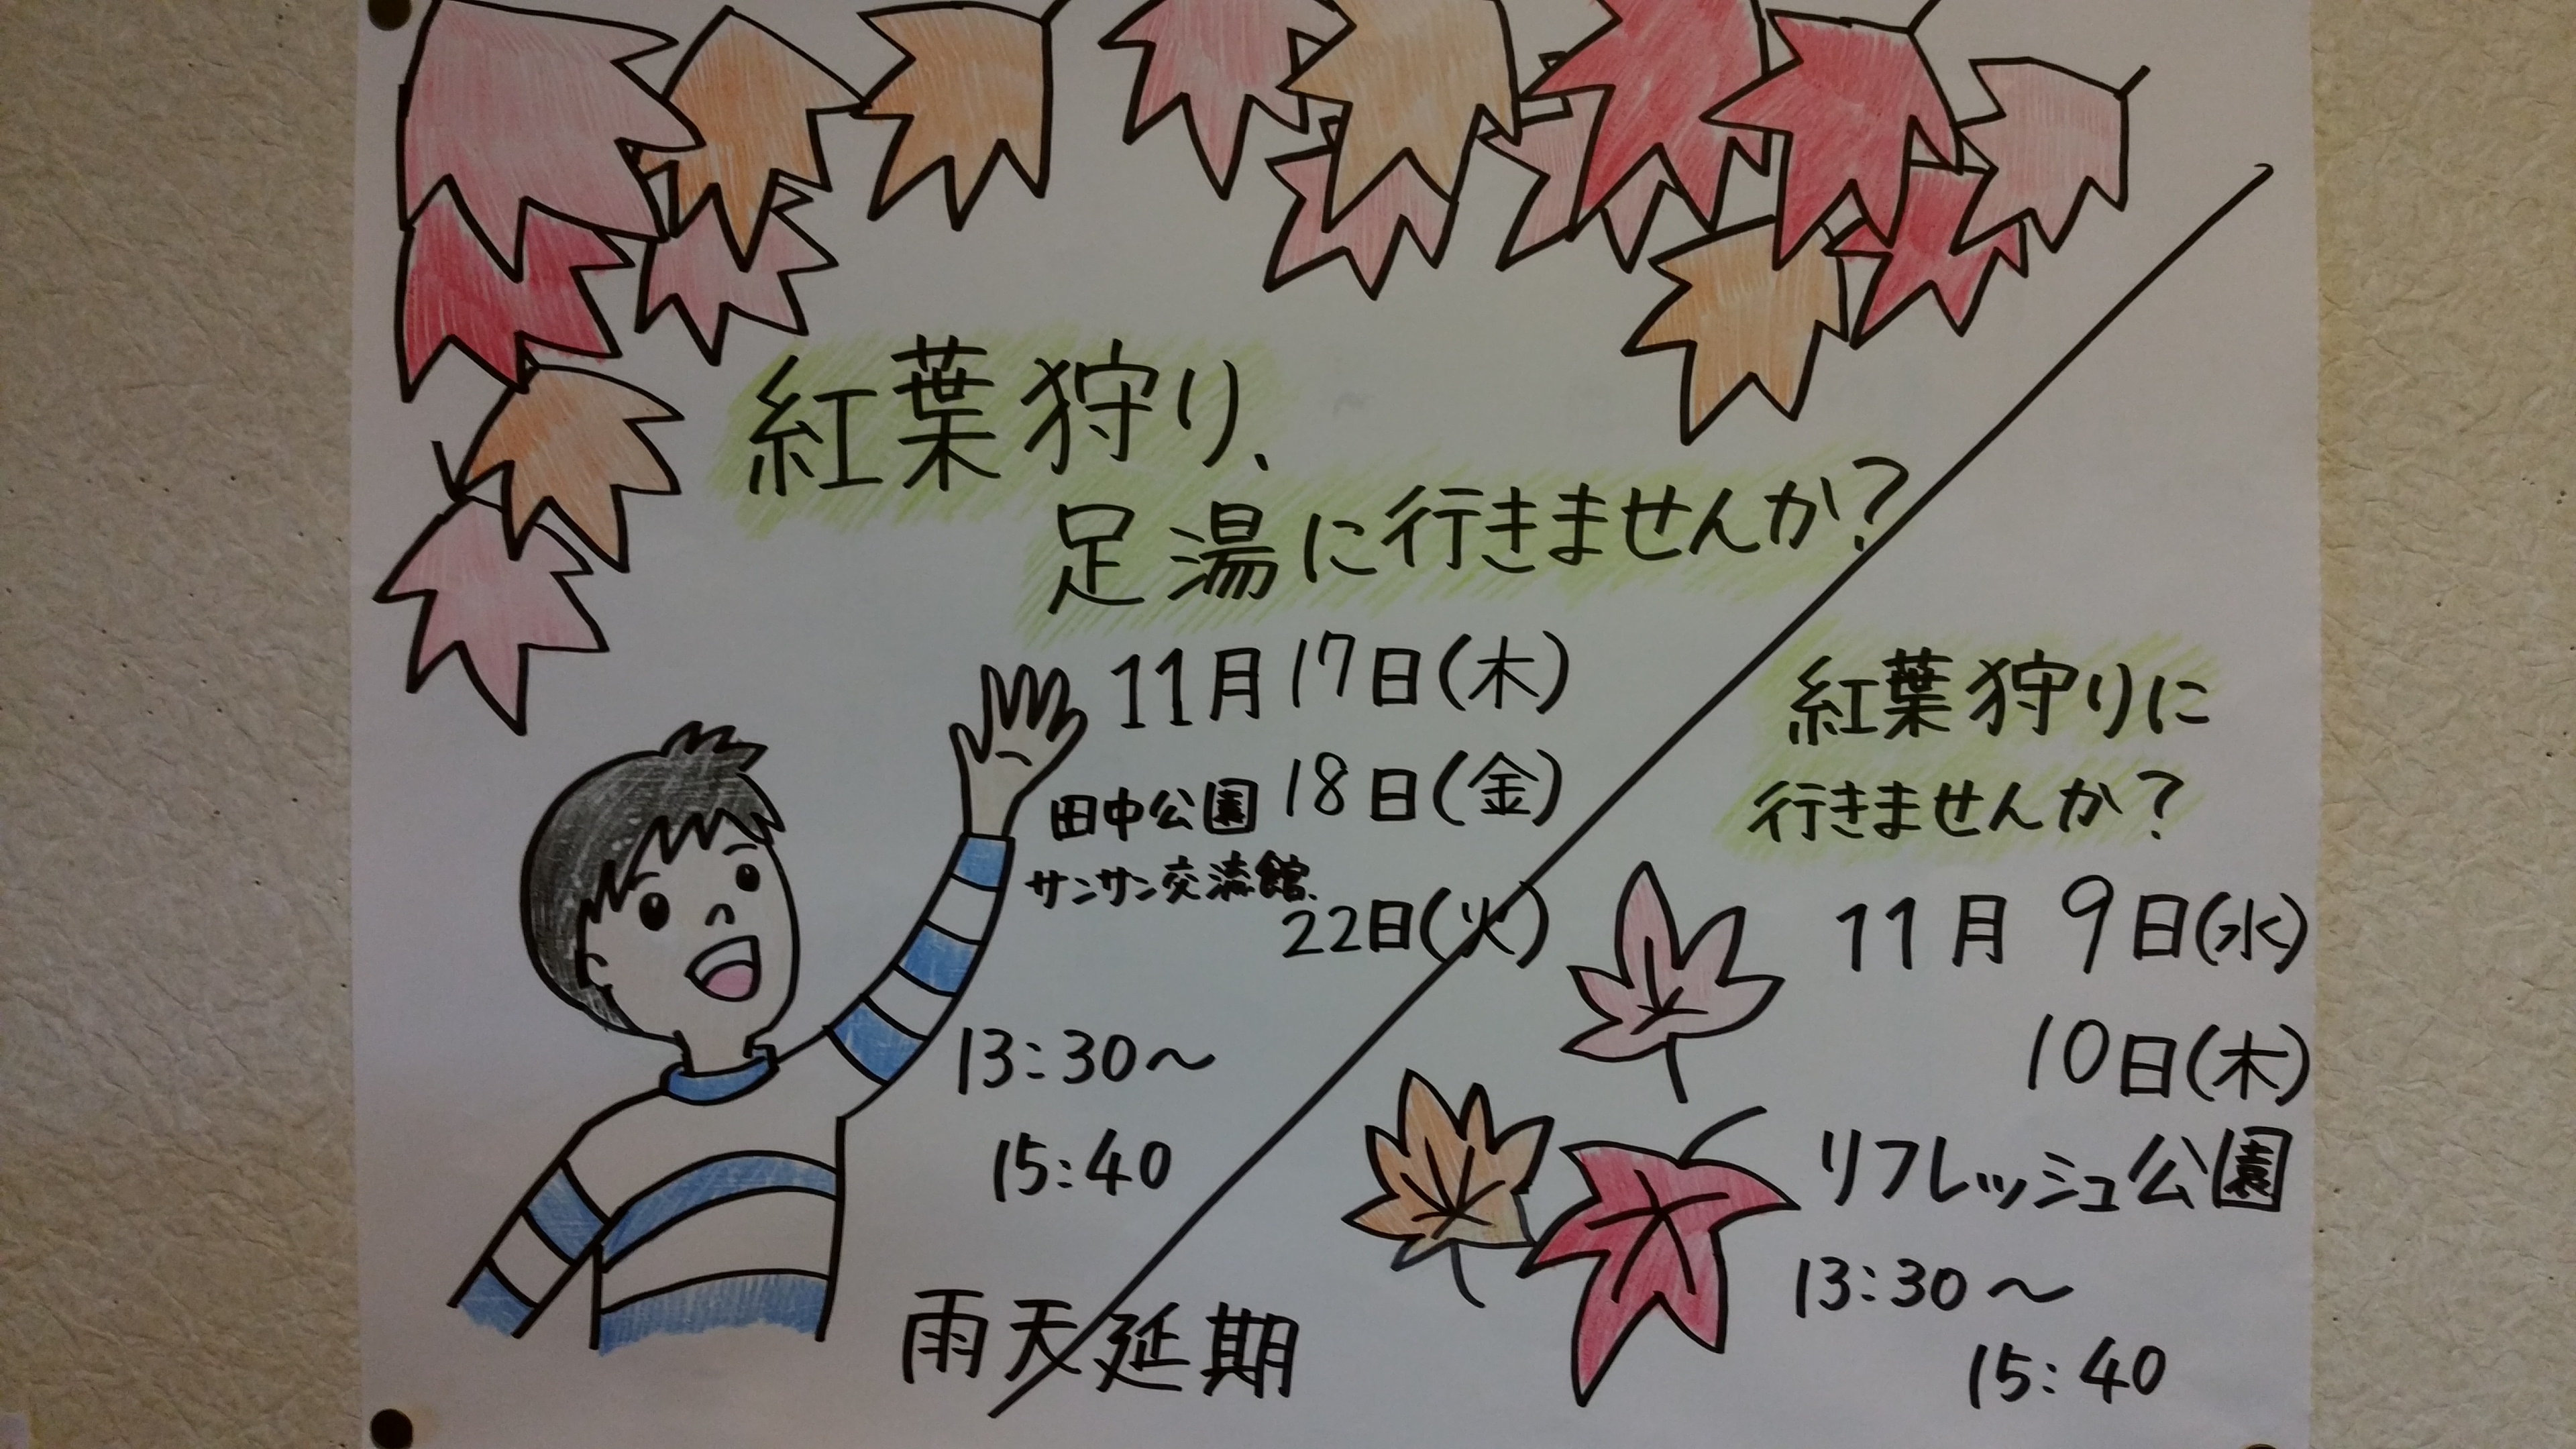 紅葉狩り、
足湯に行きませんか?
11月17日(木)
田中公園 18日(金)
サンサン交流館、
22日(火)
13:30～
15:40
雨天延期
紅葉狩りに
行きませんか?
11月 9日(水)
10日(木)
リフレッシュ公園
13:30～
15:40